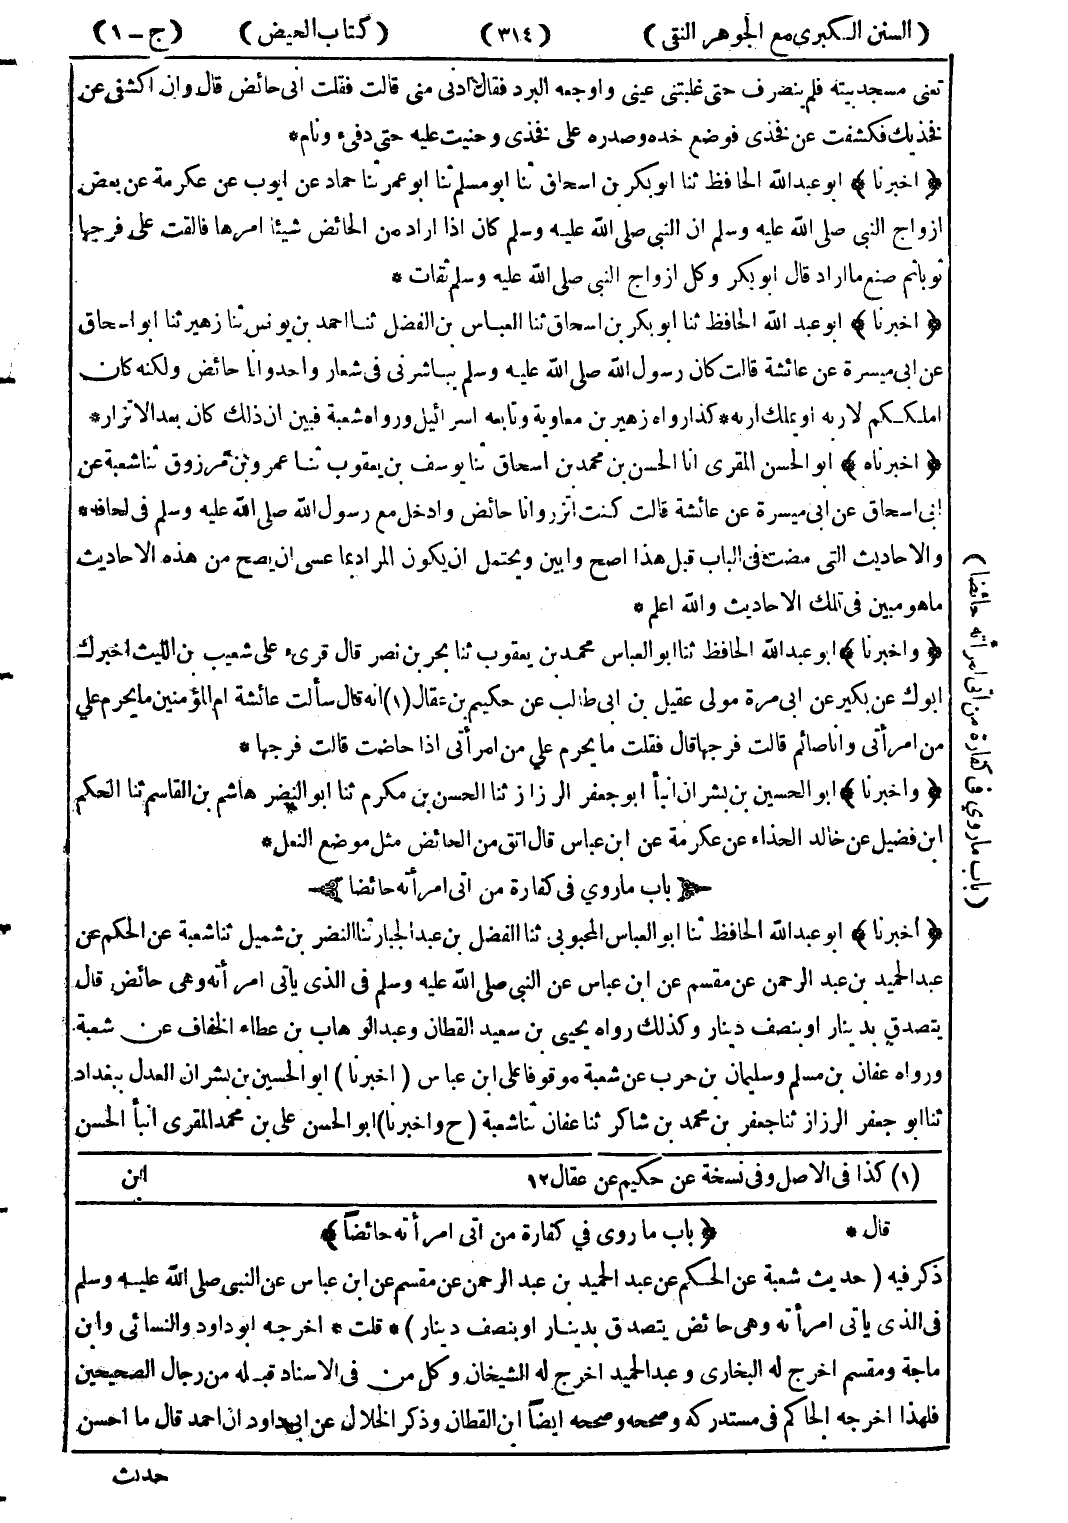 (السنن الكبرى مع الجوهر النقى) (٣١٤) (كتاب الحيض) (ج - ١)
تعنى مسجد بيته فلم ينصرف حتى غلبتنى عينى واوجعه البرد فقال ادنى منى قالت فقلت انى حائض قال وان اكشفى عن
فخذيك فكشفت عن فخذى فوضع خده وصدره على فخذى وحنيت عليه حتى دفىء ونام*
﴿ اخبرنا ﴾ ابو عبدالله الحافظ ثنا ابوبكر بن اسحاق ثنا ابو مسلم ثنا ابو عمر ثنا حماد عن ايوب عن عكرمة عن بعض
ازواج النبى صلى الله عليه وسلم ان النبى صلى الله عليه وسلم كان اذا اراد من الحائض شيئا امرها فالقت على فرجها
ثوبا ثم صنع ما اراد قال ابوبكر وكل ازواج النبى صلى الله عليه وسلم ثقات *
﴿ اخبرنا ﴾ ابو عبد الله الحافظ ثنا ابوبكر بن اسحاق ثنا العباس بن الفضل ثنا احمد بن يونس ثنا زهير ثنا ابو اسحاق
عن ابى ميسرة عن عائشة قالت كان رسول الله صلى الله عليه وسلم يباشرنى فى شعار واحد وانا حائض ولكنه كان
املككم لاربه او يملك اربه* كذا رواه زهير بن معاوية وتابعه اسرائيل ورواه شعبة فبين ان ذلك كان بعد الاتزار*
﴿ اخبرناه ﴾ ابو الحسن المقرى انا الحسن بن محمد بن اسحاق ثنا يوسف بن يعقوب ثنا عمرو بن مرزوق ثنا شعبة عن
ابى اسحاق عن ابى ميسرة عن عائشة قالت كنت اتزر وانا حائض وادخل مع رسول الله صلى الله عليه وسلم فى لحافه*
والاحاديث التى مضت فى الباب قبل هذا اصح وابين ويحتمل ان يكون المراد بما عسى ان يصح من هذه الاحاديث
ما هو مبين فى تلك الاحاديث والله اعلم *
﴿ واخبرنا ﴾ ابو عبدالله الحافظ ثنا ابو العباس محمد بن يعقوب ثنا بحر بن نصر قال قرىء على شعيب بن الليث اخبرك
ابوك عن بكير عن ابى مرة مولى عقيل بن ابى طالب عن حكيم بن عقال (١) انه قال سألت عائشة ام المؤمنين ما يحرم علي
من امرأتى وانا صائم قالت فرجها قال فقلت ما يحرم علي من امرأتى اذا حاضت قالت فرجها *
﴿ واخبرنا ﴾ ابو الحسين بن بشران انبأ ابو جعفر الرزاز ثنا الحسن بن مكرم ثنا ابو النضر هاشم بن القاسم ثنا الحكم
ابن فضيل عن خالد الحذاء عن عكرمة عن ابن عباس قال اتق من الحائض مثل موضع النعل*
باب ما روي فى كفارة من اتى امرأته حائضا
﴿ اخبرنا ﴾ ابو عبدالله الحافظ ثنا ابو العباس المحبوبى ثنا الفضل بن عبد الجبار ثنا النضر بن شميل ثنا شعبة عن الحكم عن
عبد الحميد بن عبد الرحمن عن مقسم عن ابن عباس عن النبى صلى الله عليه وسلم فى الذى ياتى امرأته وهى حائض قال
يتصدق بدينار او بنصف دينار وكذلك رواه يحيى بن سعيد القطان وعبد الوهاب بن عطاء الخفاف عن شعبة
ورواه عفان بن مسلم وسليمان بن حرب عن شعبة موقوفا على ابن عباس (اخبرنا) ابو الحسين بن بشران العدل ببغداد
ثنا ابو جعفر الرزاز ثنا جعفر بن محمد بن شاكر ثنا عفان ثنا شعبة (ح واخبرنا) ابو الحسن على بن محمد المقرى انبأ الحسن
(١) كذا فى الاصل وفى نسخة عن حكيم عن عقال ١٢ ابن
قال * ﴿ باب ما روى في كفارة من اتى امرأته حائضاً ﴾
ذكر فيه (حديث شعبة عن الحكم عن عبد الحميد بن عبد الرحمن عن مقسم عن ابن عباس عن النبى صلى الله عليه وسلم
فى الذى ياتى امرأته وهى حائض يتصدق بدينار او بنصف دينار) * قلت * اخرجه ابو داود والنسائى وابن
ماجة ومقسم اخرج له البخارى وعبد الحميد اخرج له الشيخان وكل من فى الاسناد قبله من رجال الصحيحين
فلهذا اخرجه الحاكم فى مستدركه وصححه وصححه ايضاً ابن القطان وذكر الخلال عن ابى داود ان احمد قال ما احسن
حديث
(باب ما روي فى كفارة من أتى امرأته حائضا)